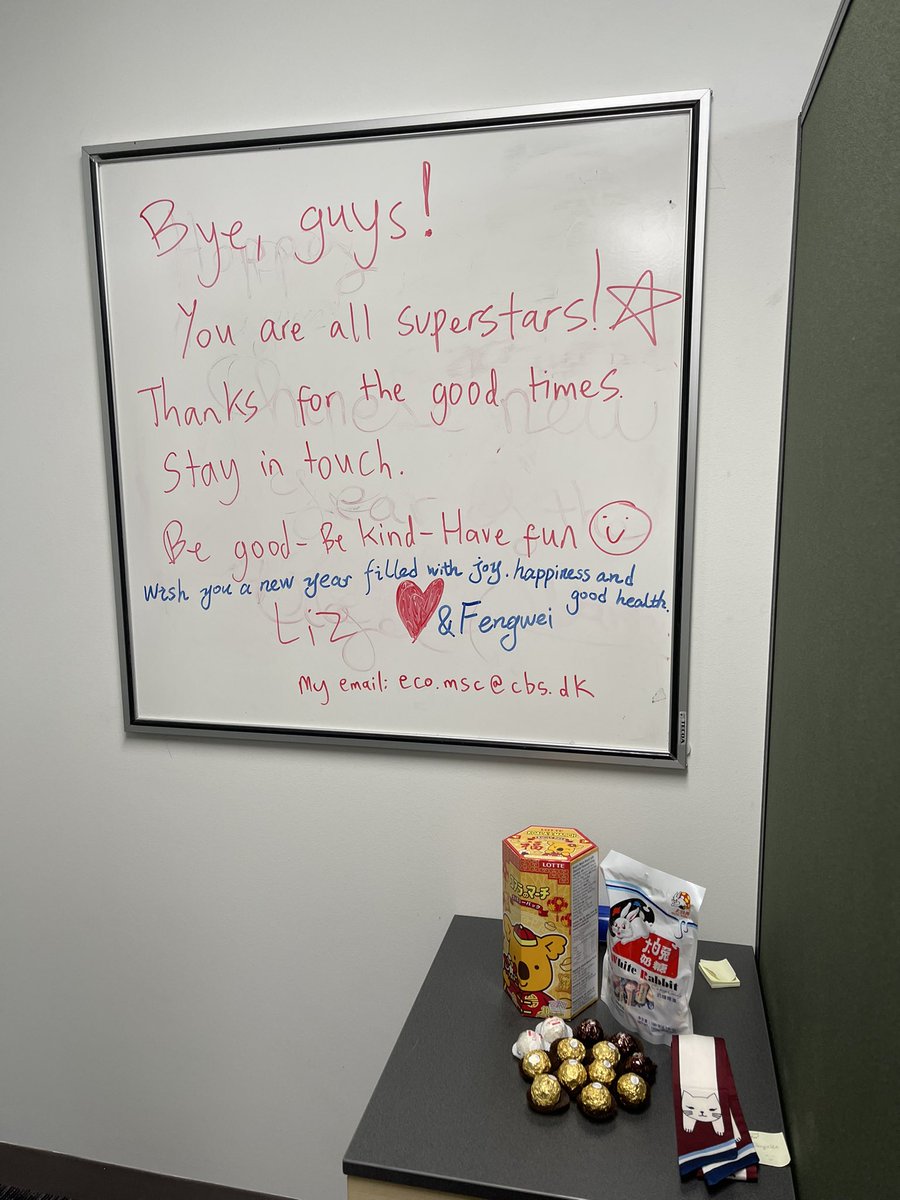 Bye, guys!
You are all superstars!
Thanks for the good times.
Stay in touch.
Be good - Be kind - Have fun
Wish you a new year filled with joy, happiness and
good health.
Liz & Fengwei
My email: eco.msc@cbs.dk
TECUA
福
LOTTE
コアラのマーチ
大白兔
奶糖
White Rabbit